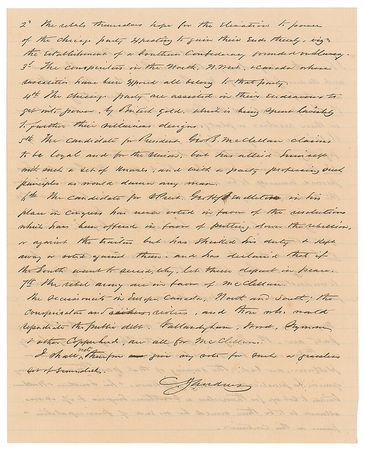 2d The rebels themselves hope for the elevation to power
of the Chicago party expecting to gain their ends thereby, viz:
the establishment of a Southern Confederacy founded on slavery.
3d The conspirators in the North, N. West, & Canada whose
have been exposed all belong to that party.
4th The Chicago party are assisted in their endeavors to
get into power, by British gold, which is being spent lavishly
to further their villainous designs.
5th The Candidate for President Geo B. McClellan claims
to be loyal and for the Union, but has allied himself
with such a set of and with a party professing such
principles as would damn any man.
6th The Candidate for V. Prest. Geo H Pendleton in his
place in Congress has never voted in favor of the resolutions
which have been offered in favor of putting down the rebellion,
or against the traitors but has shirked his duty & kept
away or voted against them. and has declared that if
the South want to secede, why, let them depart in peace.
7th The rebel army are in favor of McClellan.
The secessionists in Europe Canada, North and South, the
conspirators and and those who would
repudiate the public debt. Vallandigham, Wood, Seymour
& other Copperheads, are all for McClellan.
I shall not therefore give my vote for such a graceless
set of scoundrels.